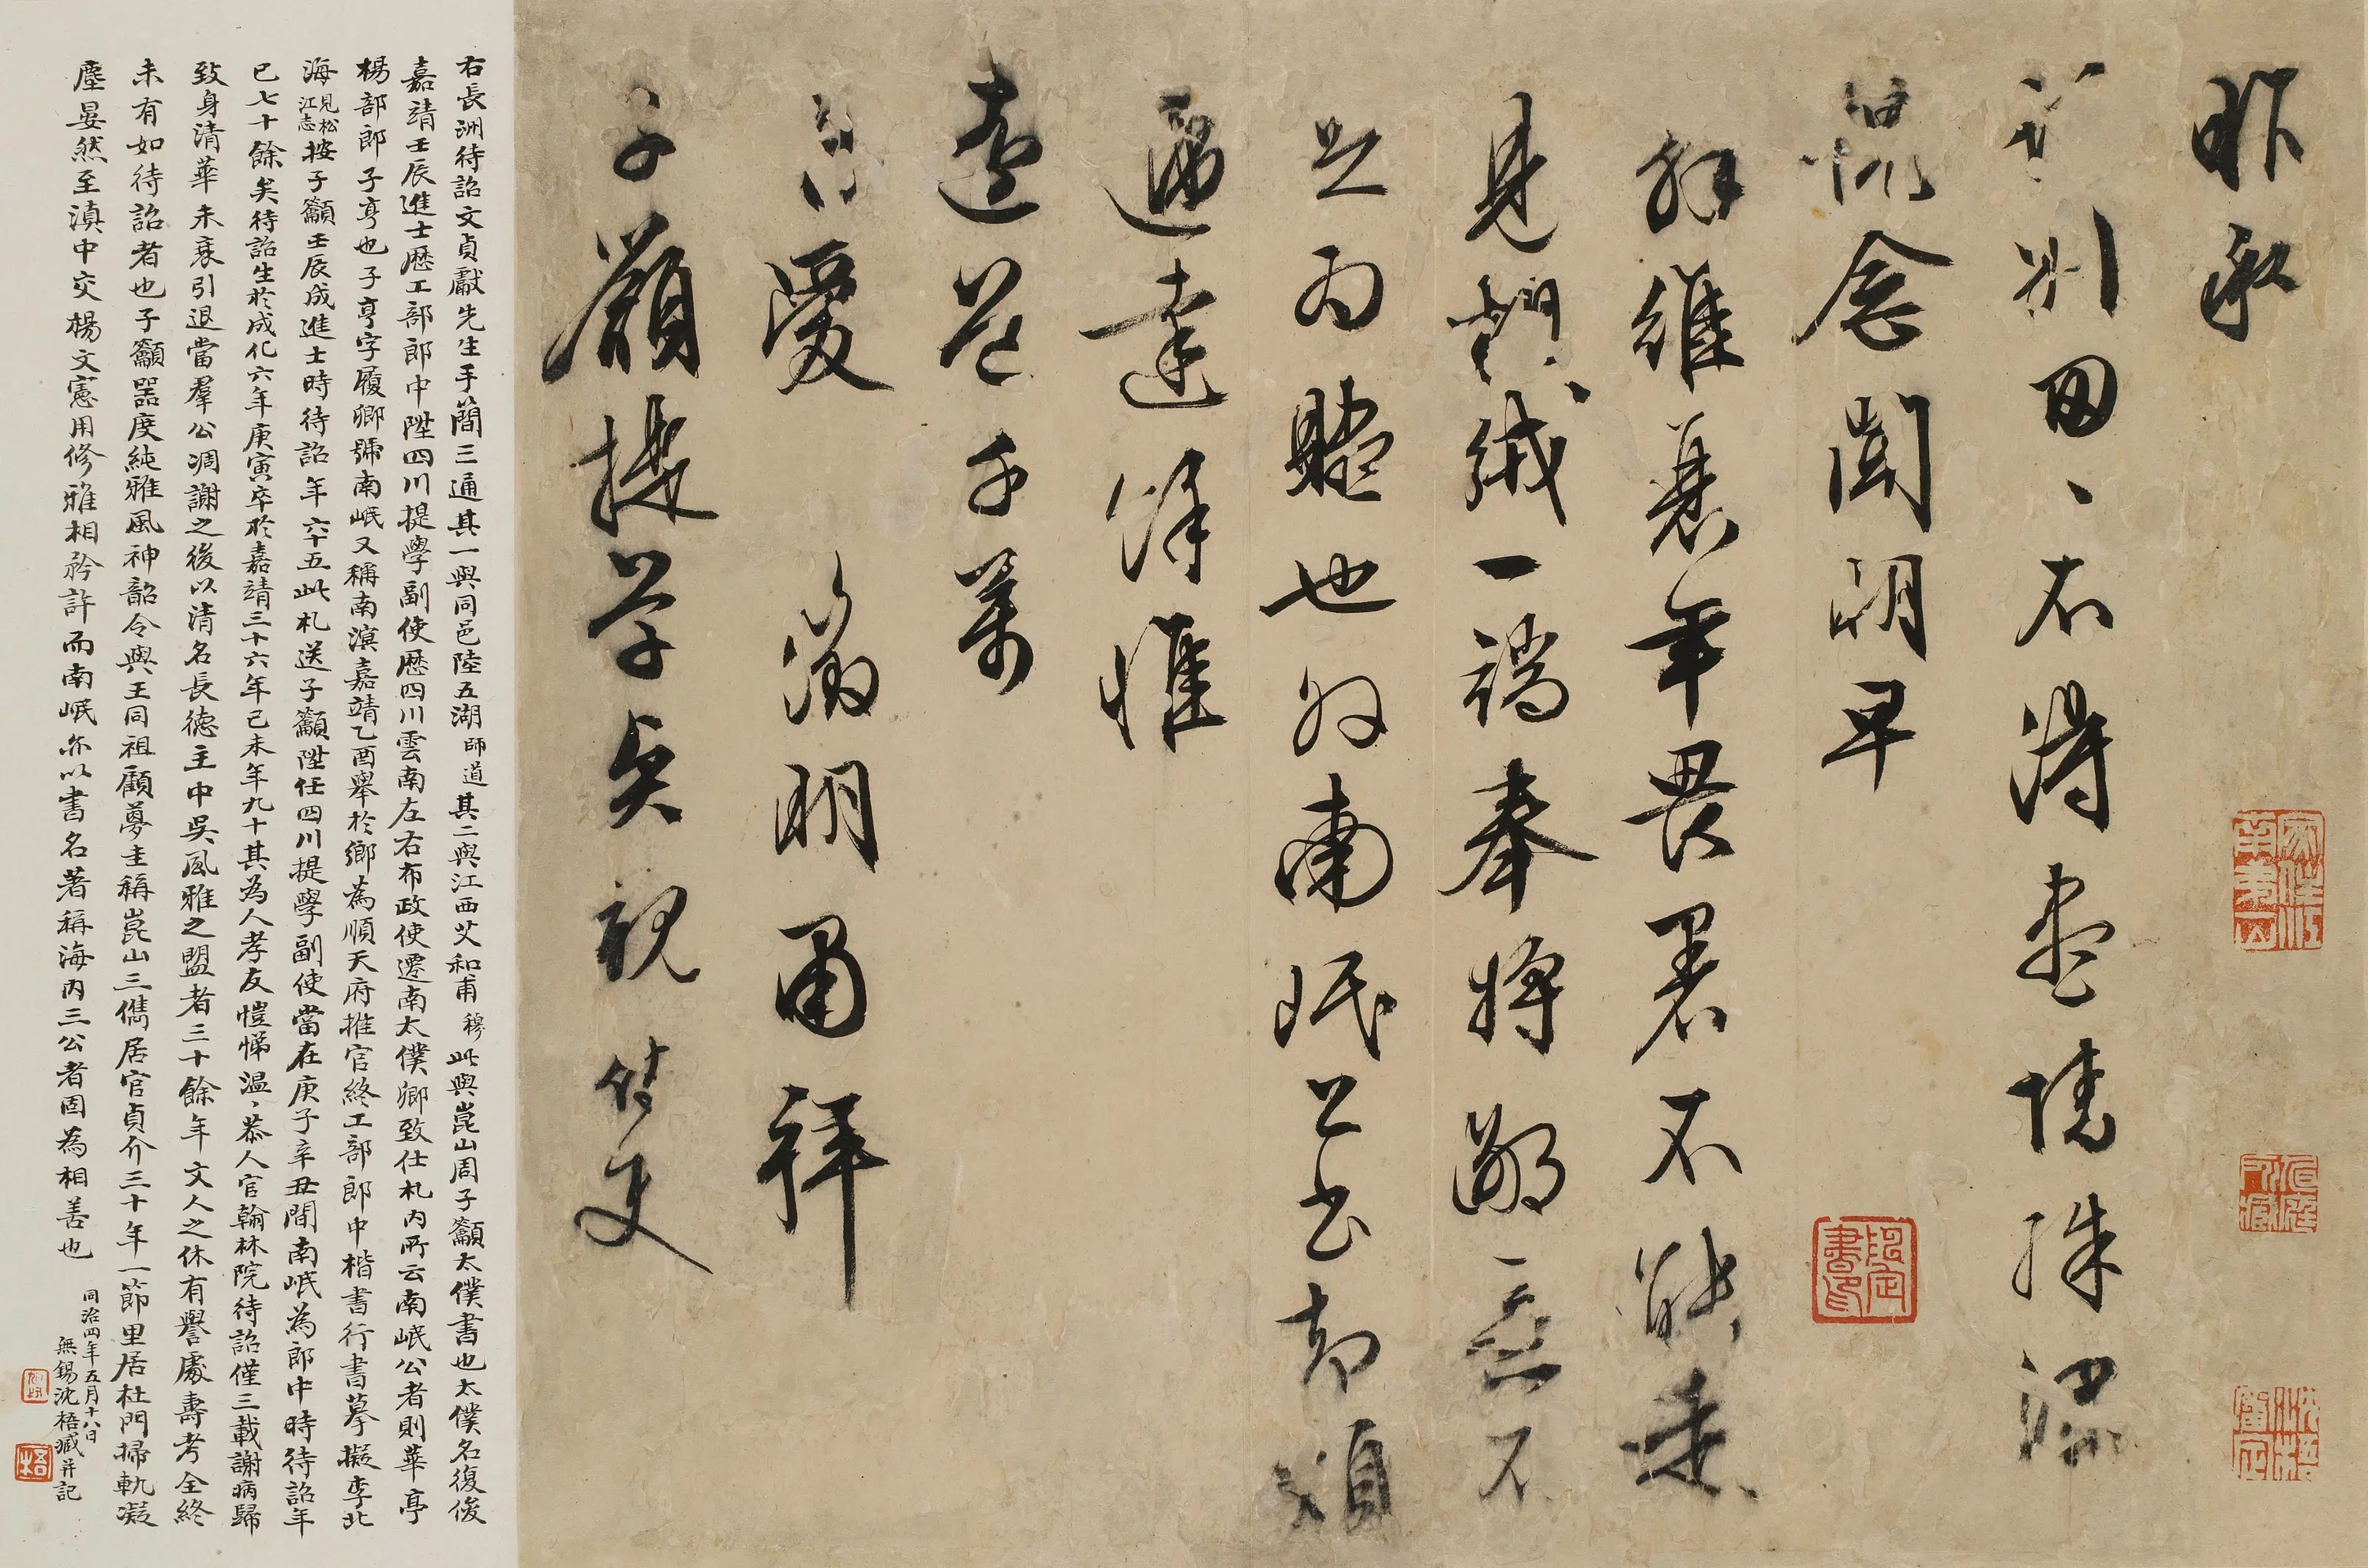 昨承
訪別匆、不得盡情殊深
愧念聞明早
解維衰年畏暑不能走
見絨一端奉將鄙意不
足為贐也外南岷公書煩
達餘惟
遠道千萬
自愛 徵明肅拜
子籲提學契親侍史
右長洲待詔文貞獻先生手簡三通其一與同邑陸五湖師道其二與江西艾和甫穆此與崑山周子籲太僕書也太僕名復俊
嘉靖壬辰進士歷工部郎中陞四川提學副使歷四川雲南左右布政使遷南太僕卿致仕札內所云南岷公者則華亭
楊部郎子亨也子亨字履卿號南岷又稱南溟嘉靖乙酉舉於鄉為順天府推官終工部郎中楷書行書摹擬李北
海見松江志按子籲壬辰成進士時待詔年六十五此札送子籲陞任四川提學副使當在庚子辛丑間南岷為郎中時待詔年
已七十餘矣待詔生於成化六年庚寅卒於嘉靖三十六年己未年九十其為人孝友愷悌溫、恭人官翰林院待詔僅三載謝病歸
致身清華未衰引退當羣公凋謝之後以清名長德主中吳風雅之盟者三十餘年文人之休有譽處壽考全終
未有如待詔者也子籲器度純雅風神韶令與王同祖顧夢圭稱崑山三儁居官貞介三十年一節里居杜門掃軌凝
塵晏然至滇中交楊文憲用修雅相矜許而南岷亦以書名著稱海內三公者固為相善也
同治四年五月十八日
無錫沈梧臧并記